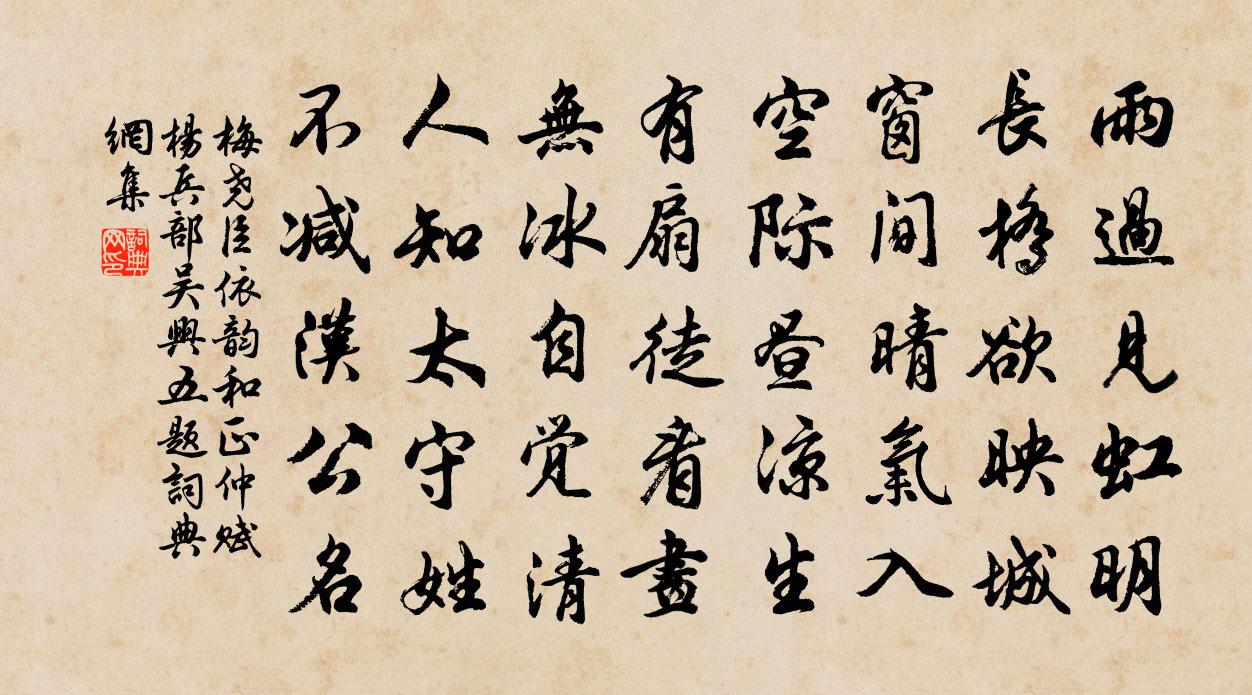 雨過見虹明
長橋欲映城
窗間晴氣入
空际昼凉生
有扇徒看畫
無冰自觉清
人知太守姓
不减漢公名
梅尧臣依韵和正仲赋
楊兵部吴興五题詞典
網集
詞典网印